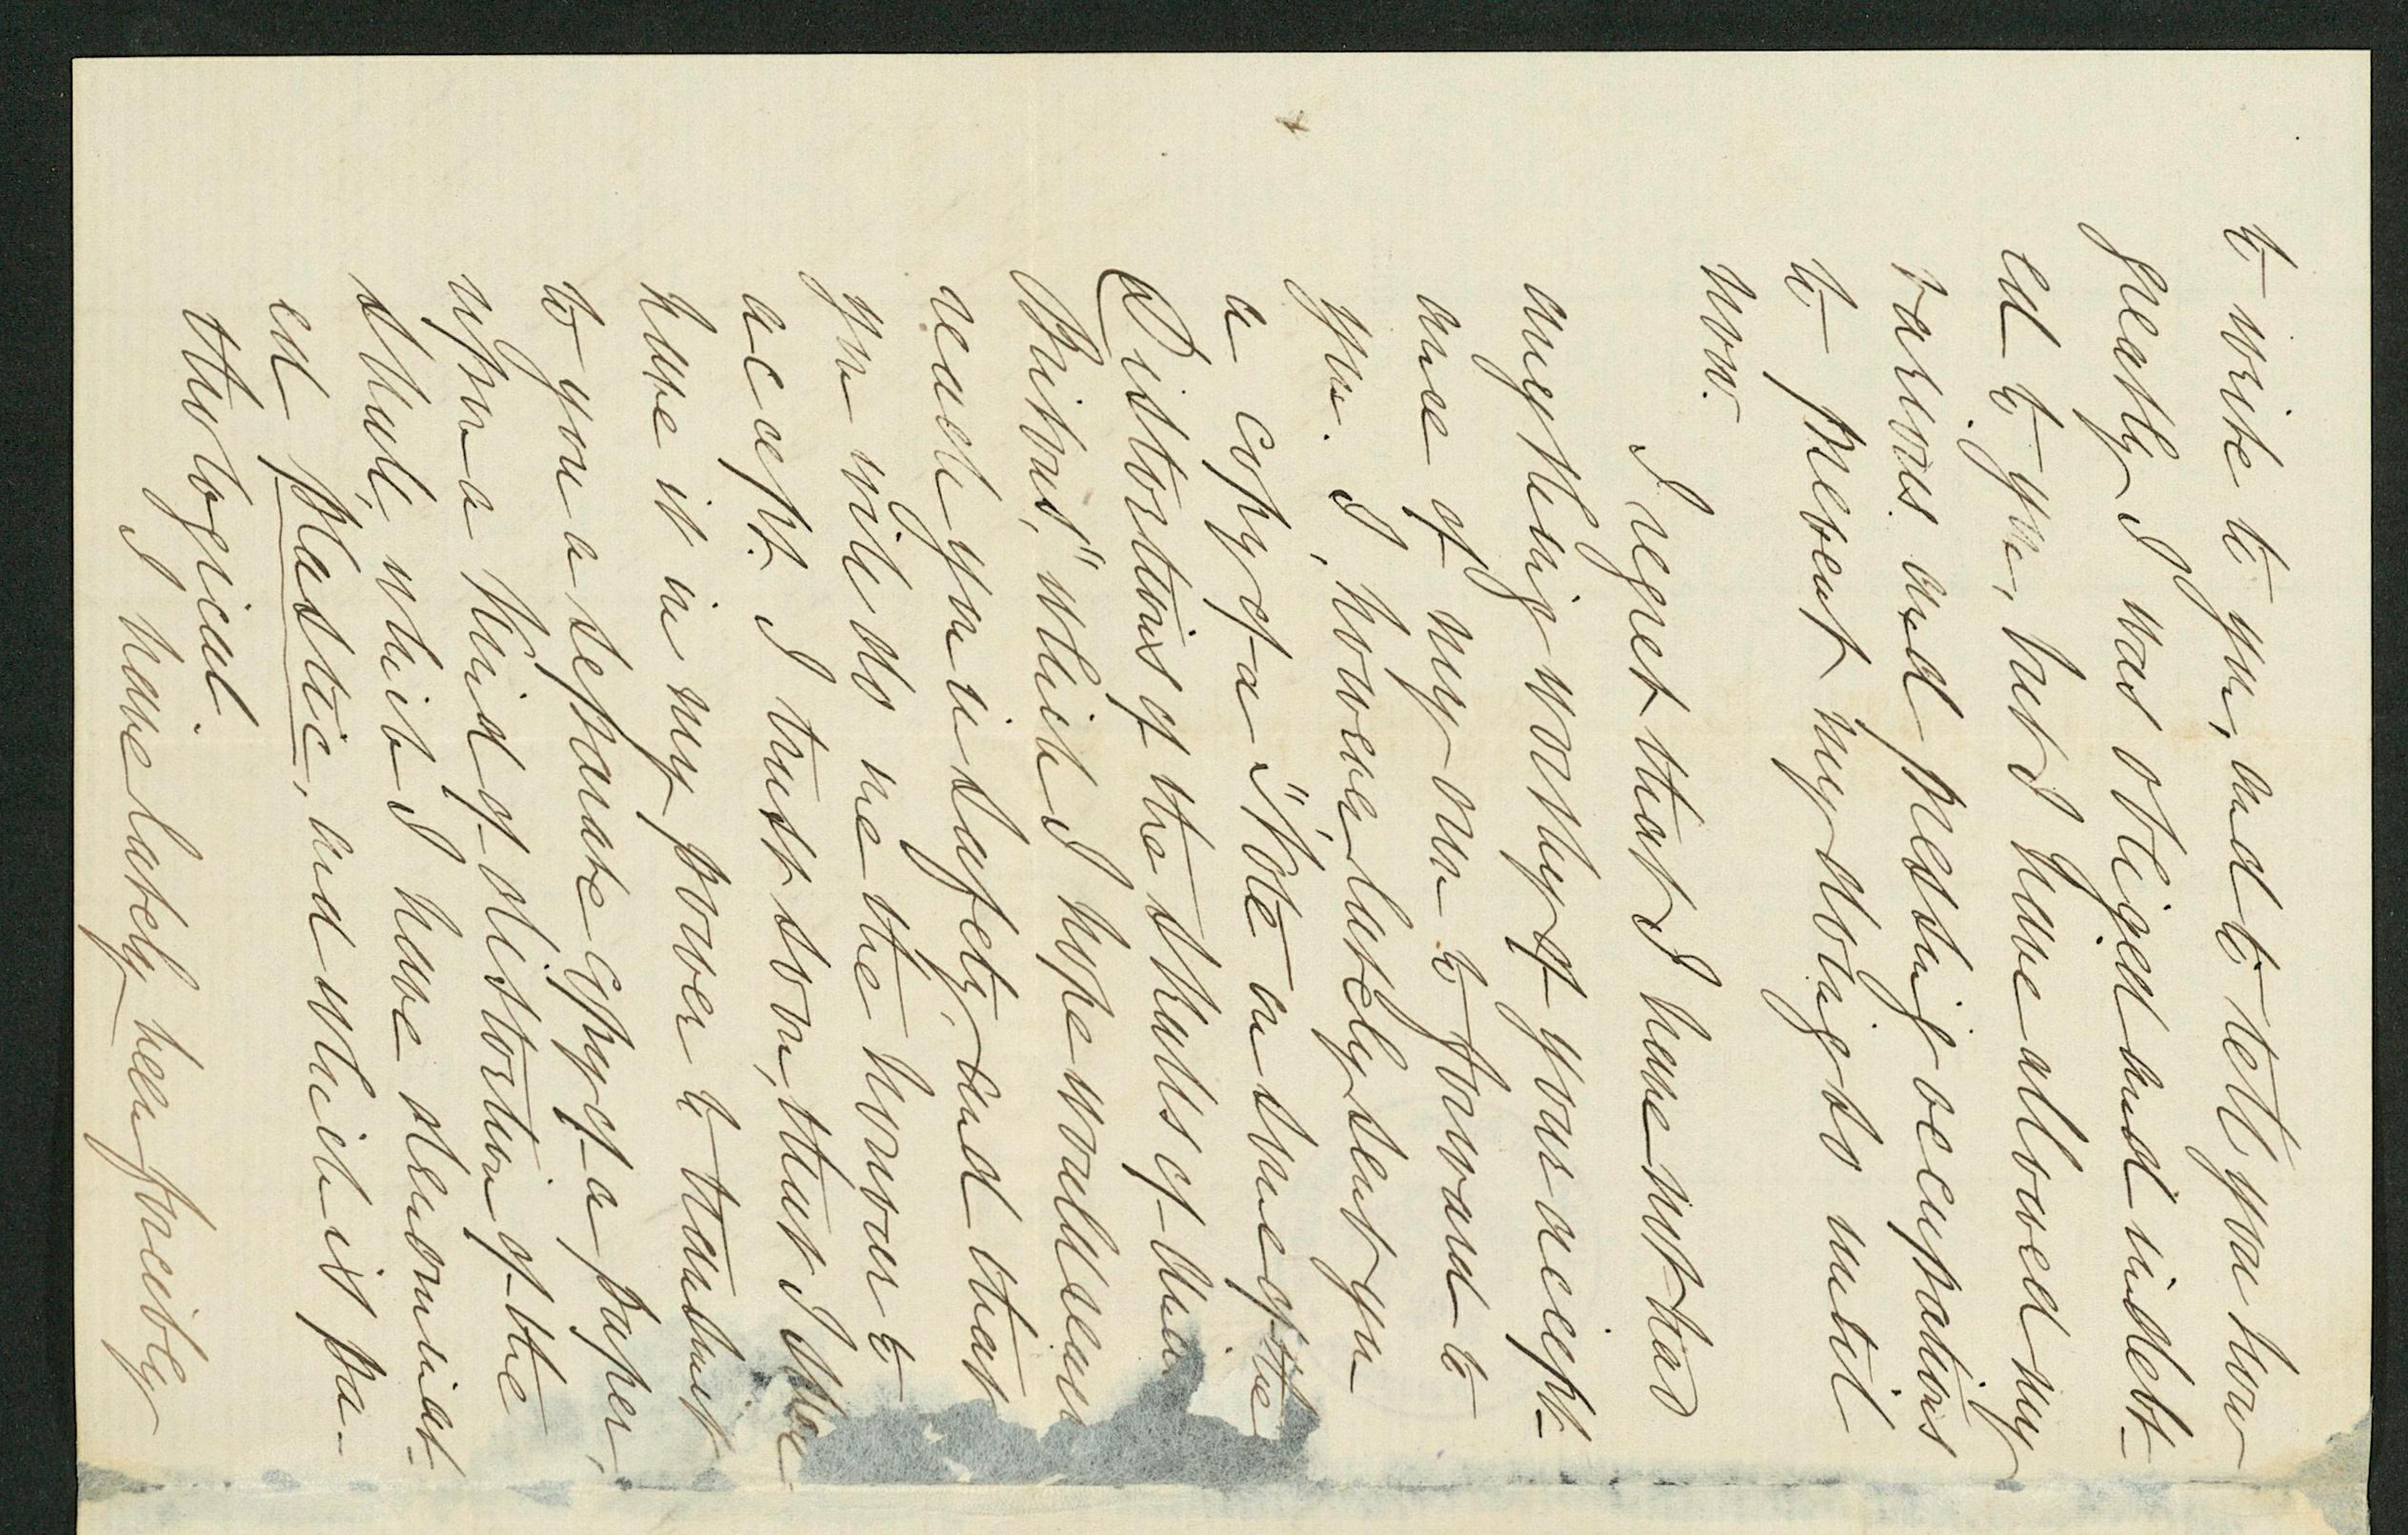 to write to you, and to tell you how
greatly I was obliged and indebt-
ed to you, but I have allowed my
various and pressing occupations
to prevent my doing so until
now.
I regret that I have not had
anything worthy of your accept-
ance of my own to forward to
you. I, however, lately sent you
a copy of a "Note on some of the
Distortions of the Skulls of the
Britons," which I hope would soon
reach you in safety, and that
you will do me the honour to
accept. I trust soon, that I
have it in my power to transmit
to you a separate copy of a paper,
upon a kind of distortion of the
skull, which I have denominat-
ed plastic, and which is pa-
thological.
I have lately been forcibly